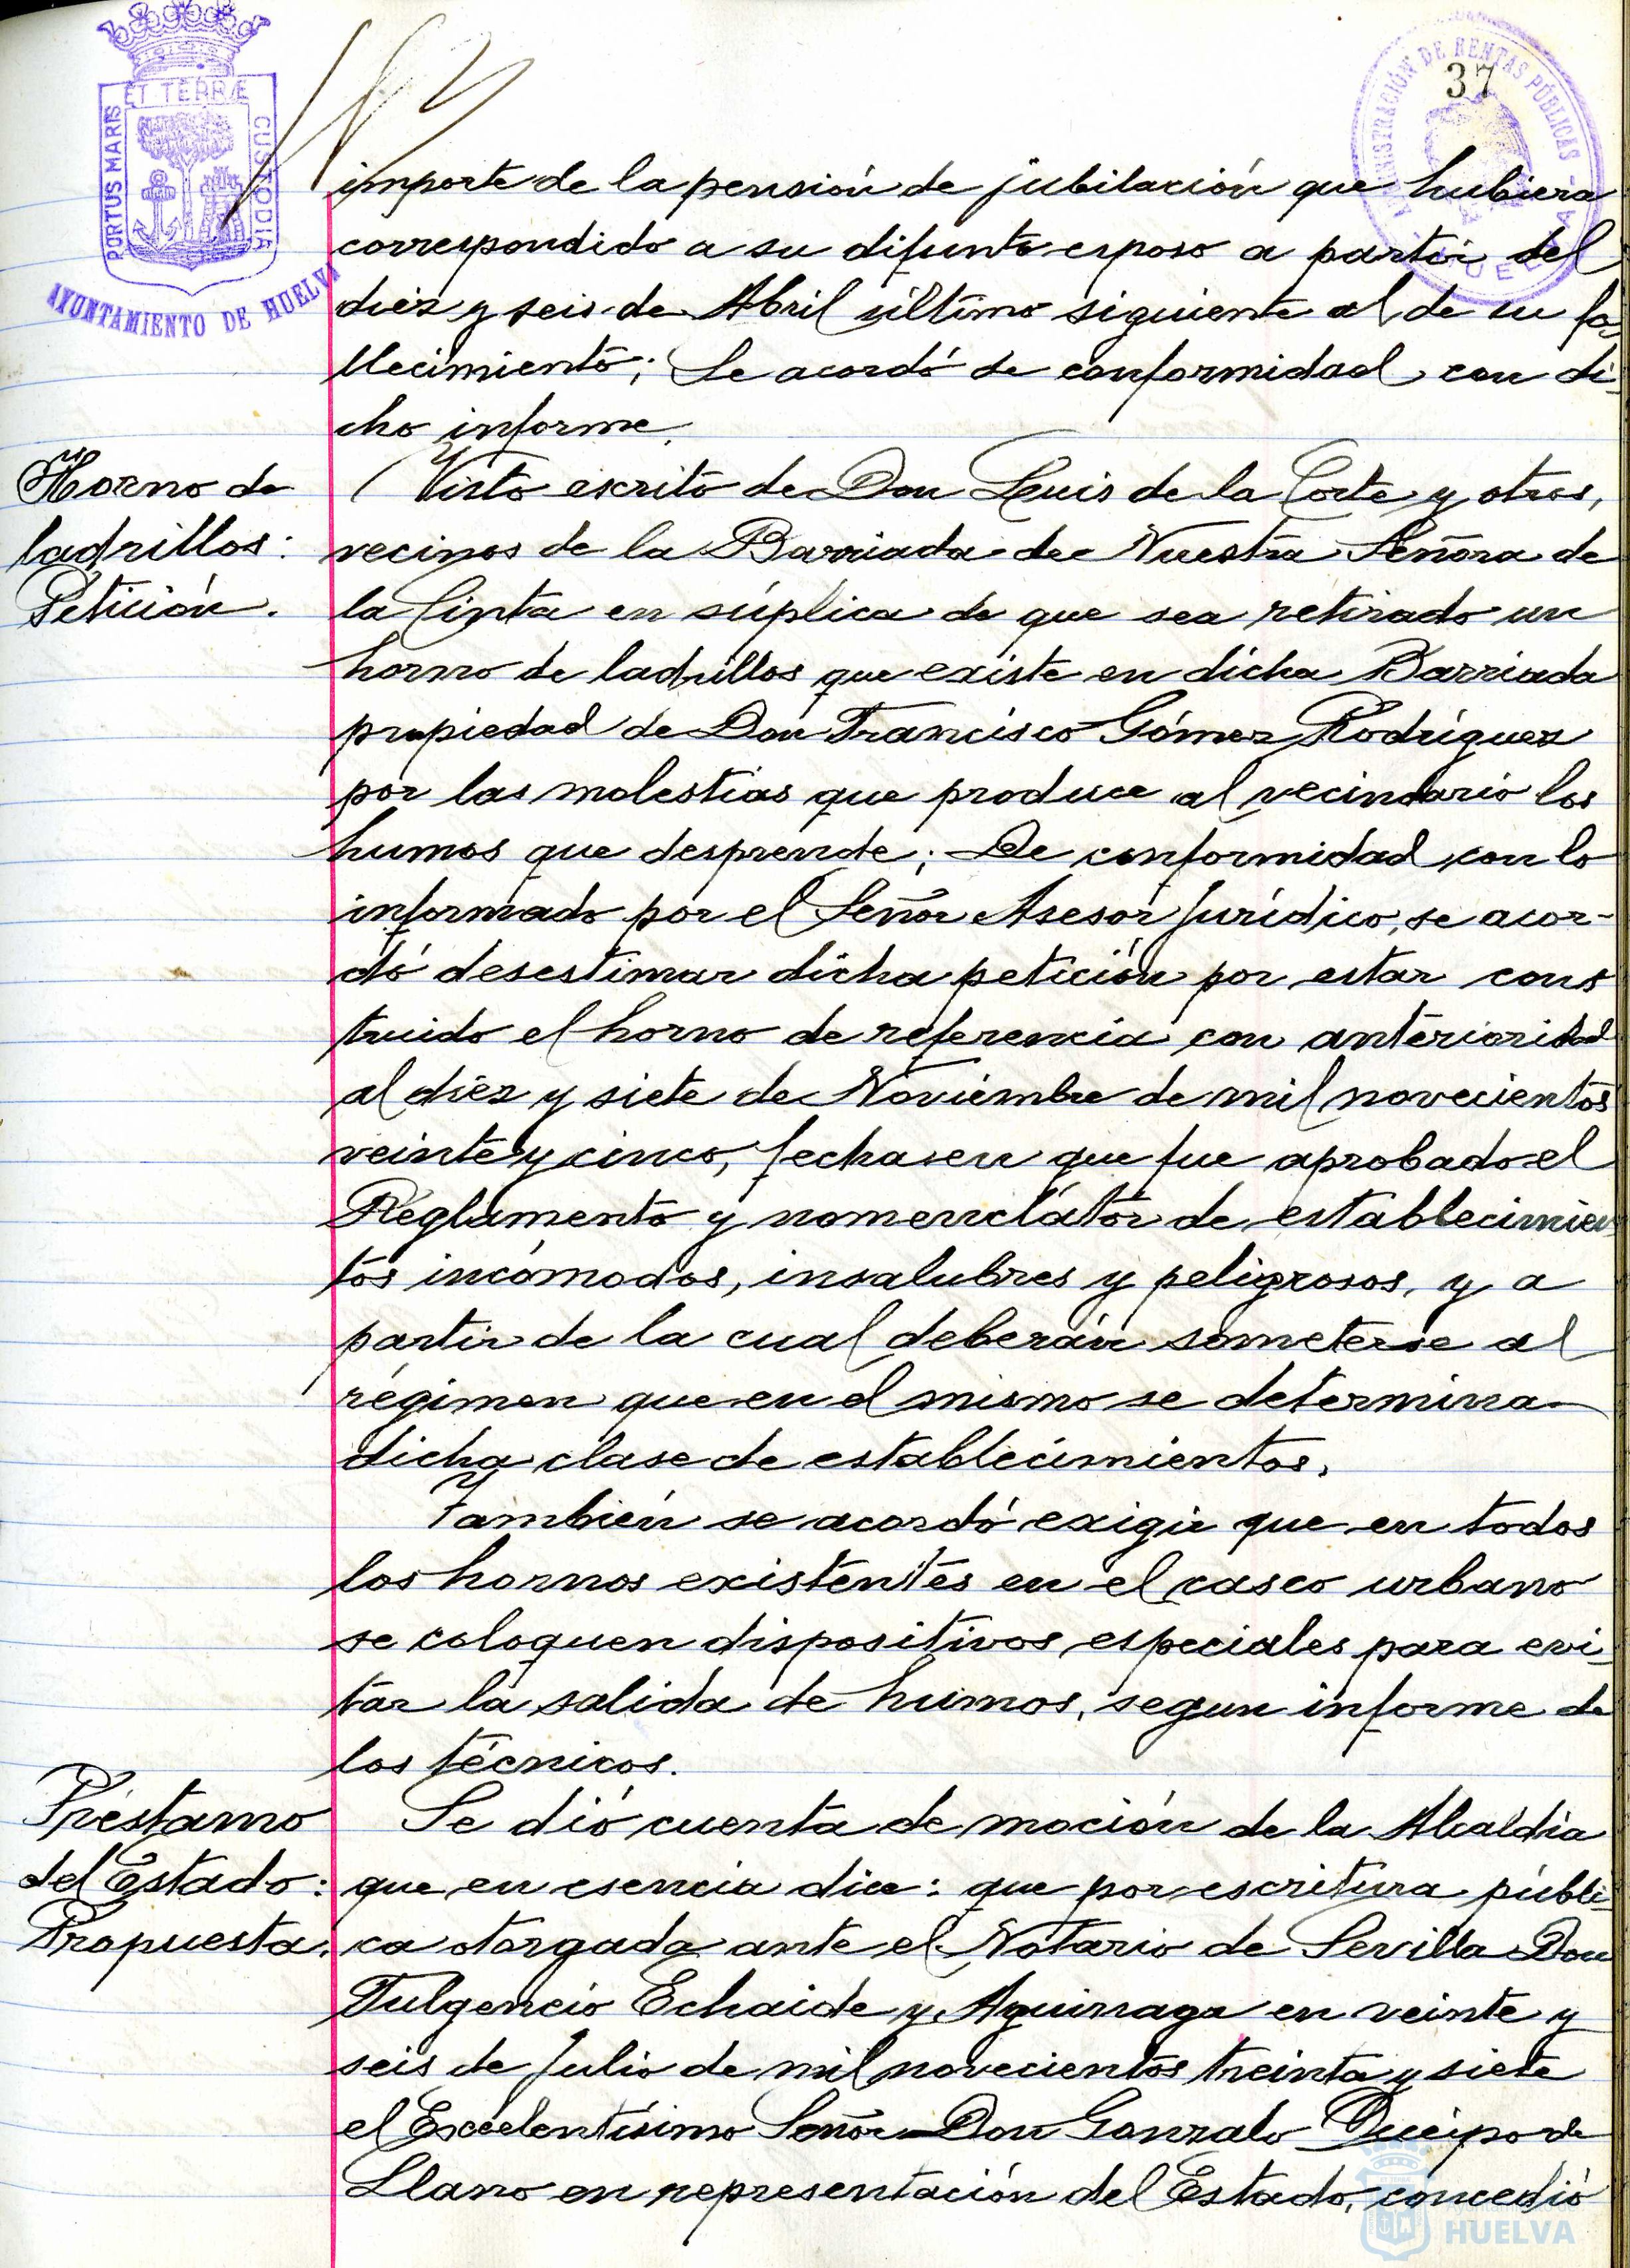 37
ET TERRÆ
PORTUS MARIS
CUSTODIA
AYUNTAMIENTO DE HUELVA
ADMINISTRACIÓN DE RENTAS PÚBLICAS
HUELVA
importe de la pensión de jubilación que hubiera
correspondido a su difunto esposo a partir del
diez y seis de Abril último siguiente al de su fa-
llecimiento; Se acordó de conformidad con di-
cho informe.
Horno de
ladrillos:
Petición.
Visto escrito de Don Luis de la Corte y otros,
vecinos de la Barriada de Nuestra Señora de
la Cinta en súplica de que sea retirado un
horno de ladrillos que existe en dicha Barriada
propiedad de Don Francisco Gómez Rodríguez
por las molestias que produce al vecindario los
humos que desprende; De conformidad con lo
informado por el Señor Asesor Jurídico, se acor-
dó desestimar dicha petición por estar cons
truido el horno de referencia con anterioridad
al diez y siete de Noviembre de mil novecientos
veinte y cinco, fecha en que fue aprobado el
Reglamento y nomenclátor de establecimien
tos incómodos, insalubres y peligrosos, y a
partir de la cual deberán someterse al
régimen que en el mismo se determina
dicha clase de establecimientos.
También se acordó exigir que en todos
los hornos existentes en el casco urbano
se coloquen dispositivos especiales para evi-
tar la salida de humos, segun informe de
los técnicos.
Préstamo
del Estado:
Propuesta.
Se dió cuenta de moción de la Alcaldía
que en esencia dice: que por escritura públi-
ca otorgada ante el Notario de Sevilla Don
Fulgencio Echaide y Aguinaga en veinte y
seis de Julio de mil novecientos treinta y siete
el Excelentísimo Señor Don Gonzalo Queipo de
Llano en representación del Estado, concedió
Ayuntamiento de
HUELVA